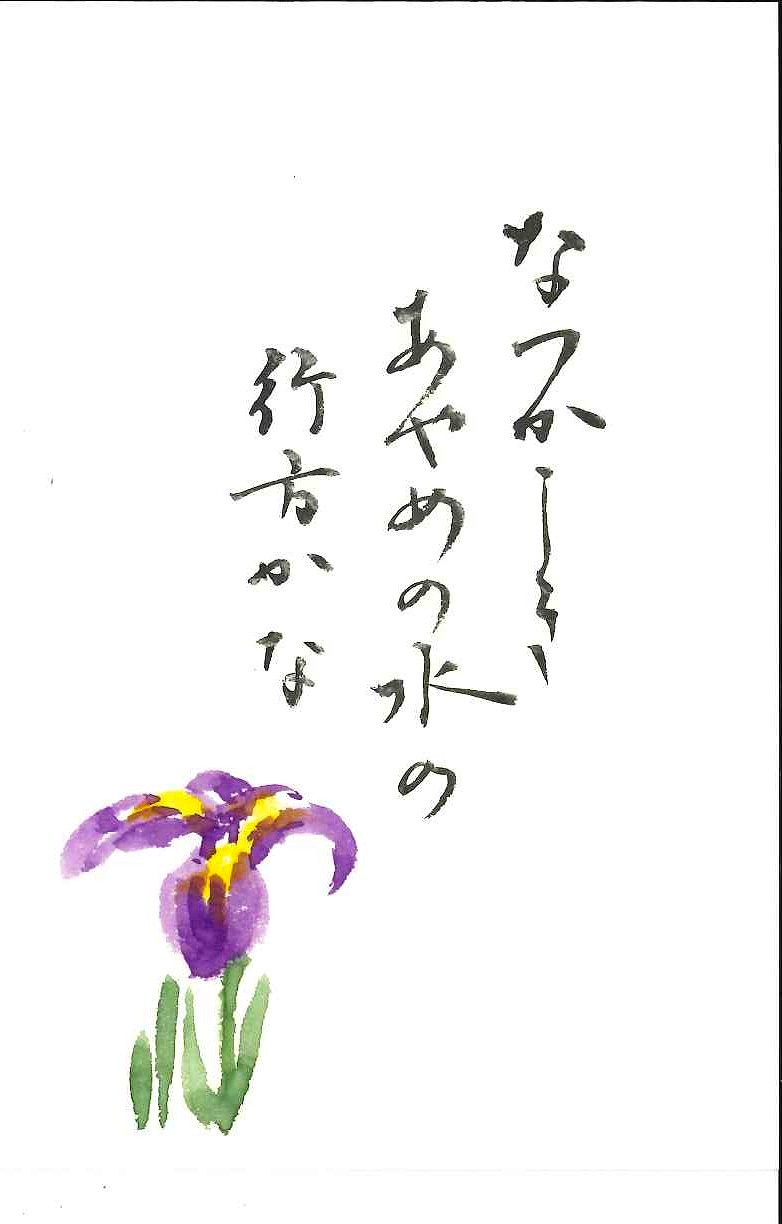 なつかしき
あやめの水の
行方かな